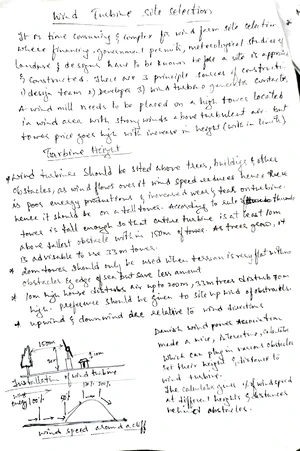 Wind Turbine site selection
It is time consuming & complex for wind farm site selection
where financing, government permits, meteorological studies of
landuse & designs have to be known before a site is approved
& constructed. There are 3 principle sources of constructi.
1) design team 2) Developer 3) wind turbine generator contractor.
A wind mill needs to be placed on a high towers located
in wind area with strong winds above turbulent air but
tower price goes high with increase in height (with in limits)
Turbine Height
* Wind turbines should be sited above trees, buildings & other
obstacles, as wind flows over it wind speed reduces hence there
is poor energy productions & increased wear & tear on turbine.
hence it should be on a tall tower. According to rule thumb
tower is tall enough so that entire turbine is at least 10m
above tallest obstacle within 150m of tower. As trees grow, it
is advisable to use 33m tower.
* 20m tower should only be used when terrain is very flat with no
obstacles eg edge of sea but save less amount
* 10m high house disturbs air up to 200m, 33m trees disturb 70m
high. preference should be given to site up wind of obstacles.
* upwind & downwind are relative to wind directions
150m
10m
Installation of wind turbine
wind
energy 100%
50%
wind speed around a cliff
Danish wind power association
made a nice, interactive, calculator
which can plug in various obstacles
set their height & distance to
wind turbine.
The calculator gives % of wind speed
at different heights & distances
behind obstacles.